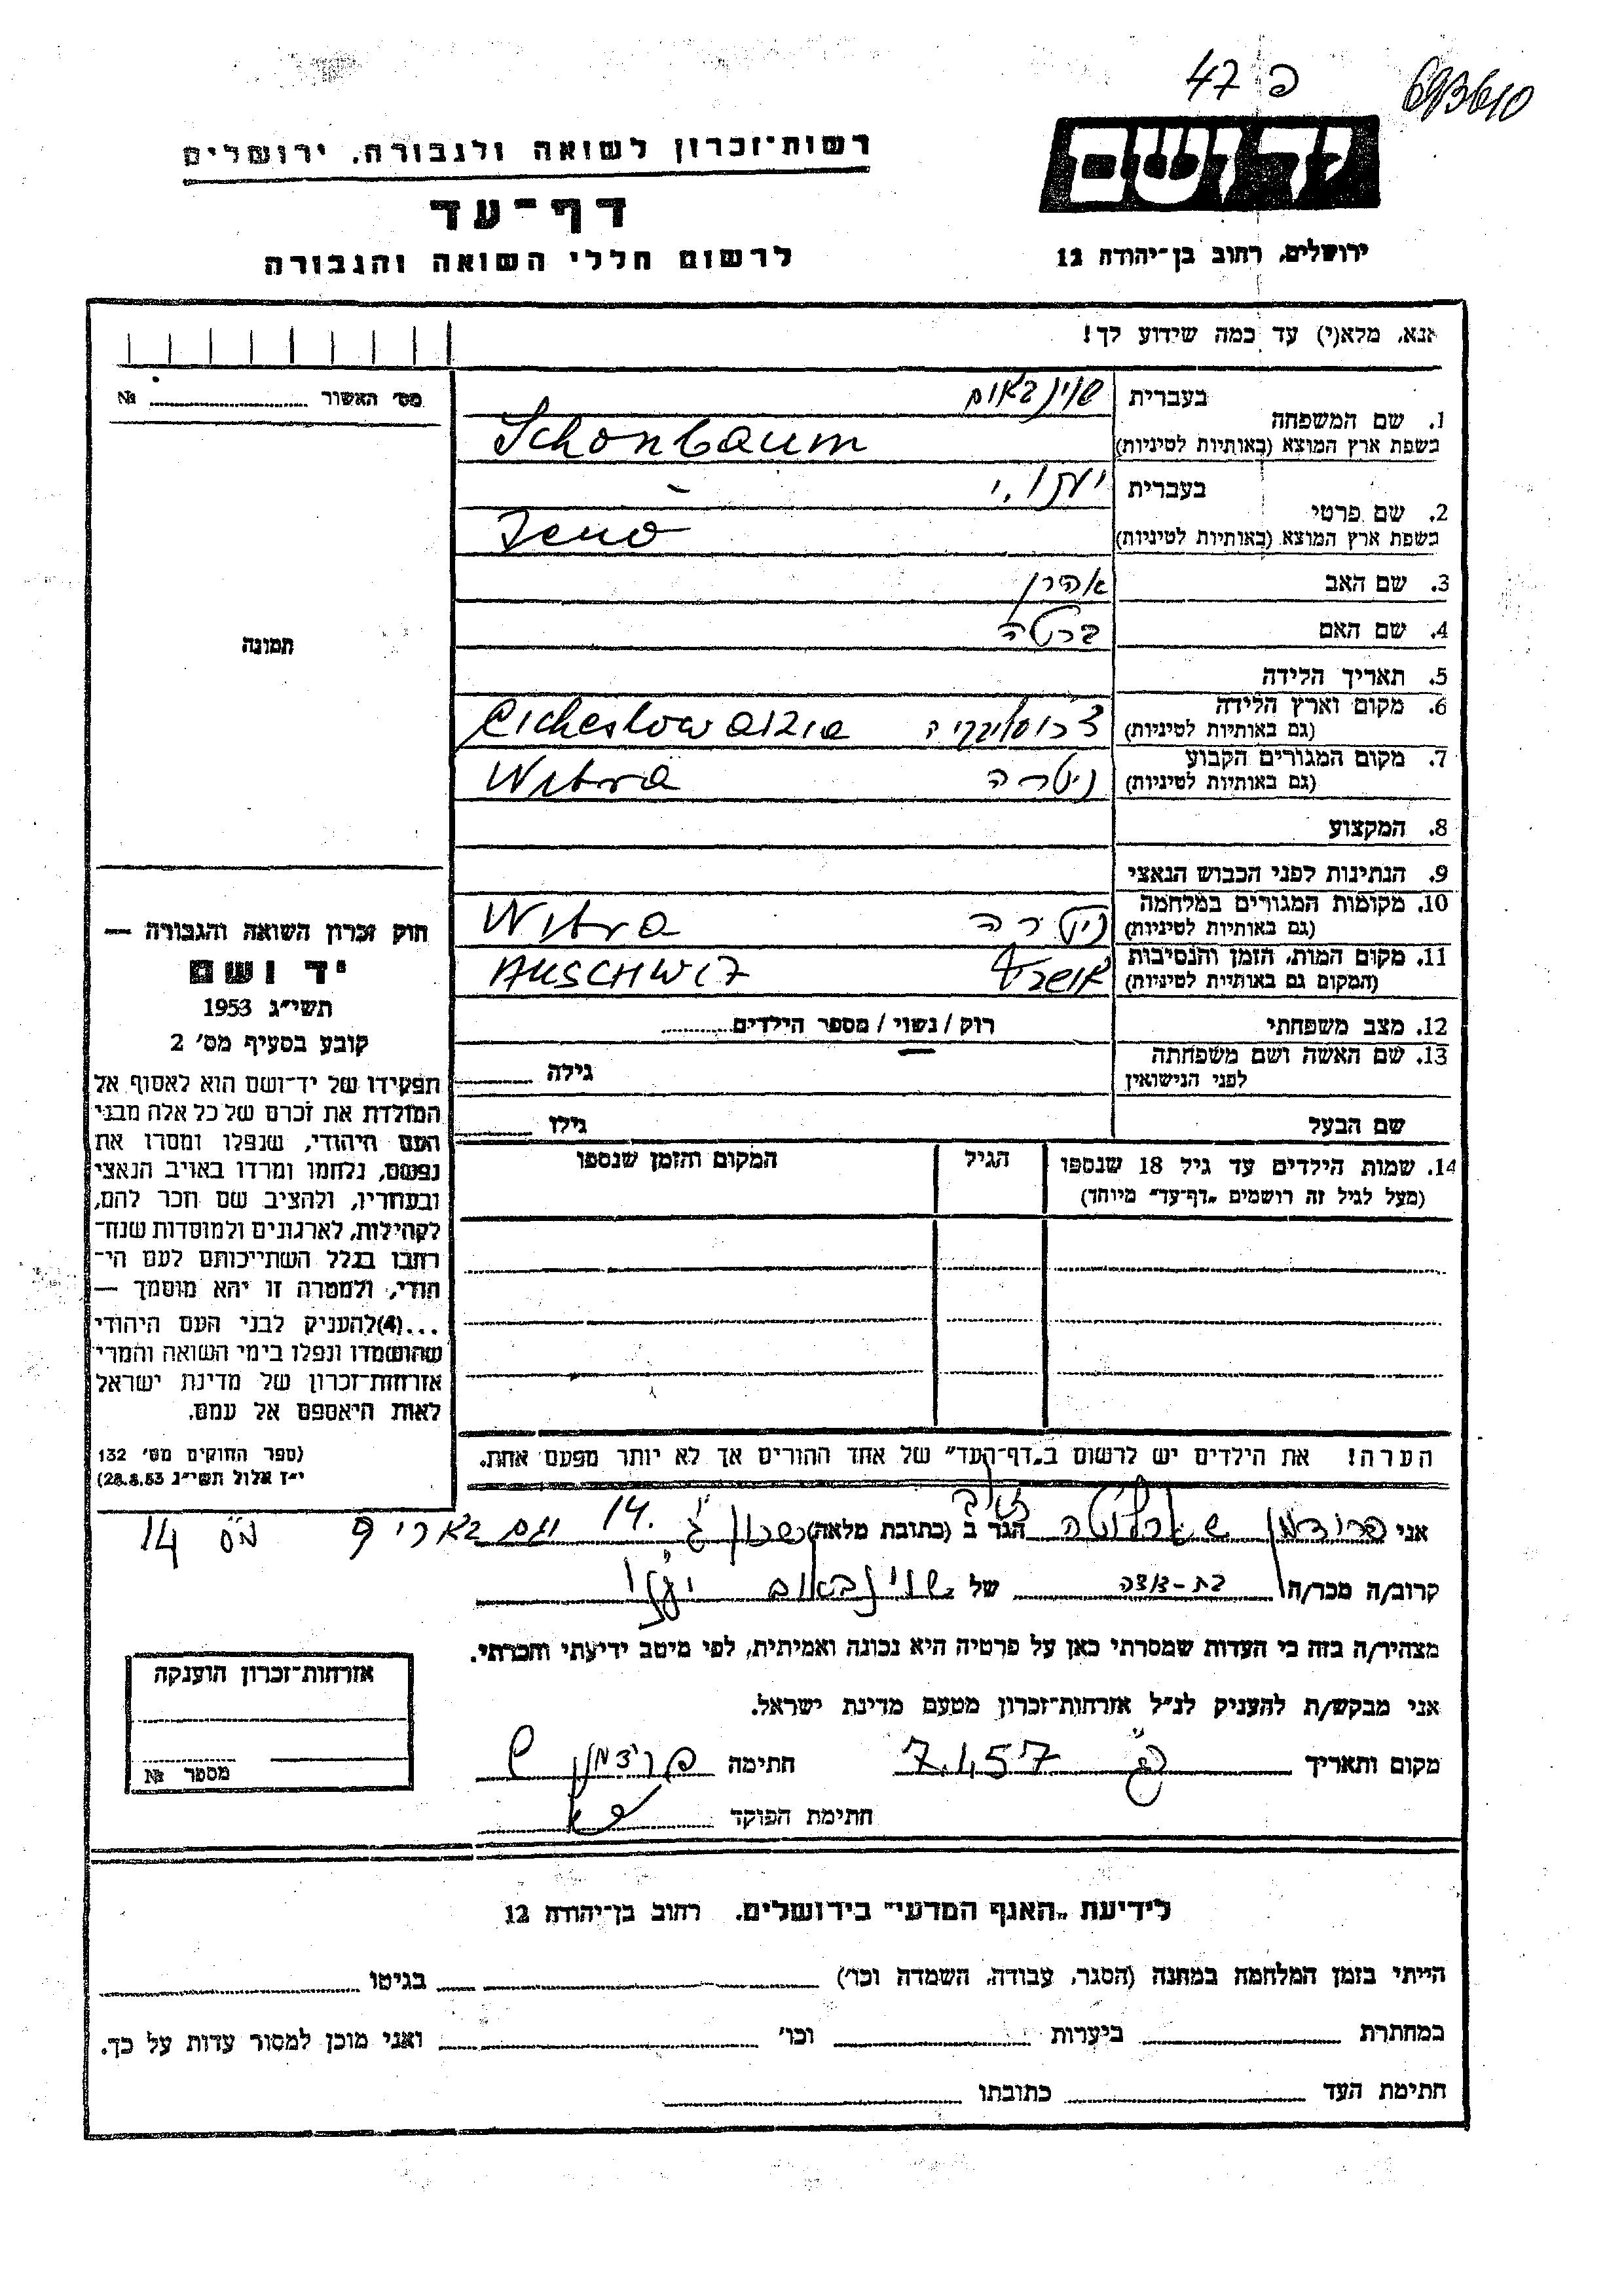 פ 47
693610
יד ושם
רשות־זכרון לשואה ולגבורה. ירושלים
דף־עד
ירושלים, רחוב בן־יהודה 12
לרשום חללי השואה והגבורה
אנא, מלא(י) עד כמה שידוע לך!
מס׳ האשור № 
1. שם המשפחה
בעברית שוינבאום
בשפת ארץ המוצא (באותיות לטיניות) Schonbaum
2. שם פרטי
בעברית
בשפת ארץ המוצא (באותיות לטיניות) Jenö
3. שם האב אהרן
4. שם האם ברטה
תמונה
5. תאריך הלידה
6. מקום וארץ הלידה
(גם באותיות לטיניות) צ׳כוסלובקיה
7. מקום המגורים הקבוע
(גם באותיות לטיניות) ניטרה Witra
8. המקצוע
9. הנתינות לפני הכבוש הנאצי
10. מקומות המגורים במלחמה
(גם באותיות לטיניות) ניטרה Witra
11. מקום המות, הזמן והנסיבות
(המקום גם באותיות לטיניות) AUSCHWIZ
12. מצב משפחתי רוק / נשוי / מספר הילדים
13. שם האשה ושם משפחתה
לפני הנישואין גילה
שם הבעל גילו
14. שמות הילדים עד גיל 18 שנספו
(מעל לגיל זה רושמים „דף־עד״ מיוחד)
הגיל
המקום והזמן שנספו
חוק זכרון השואה והגבורה —
יד ושם
תשי״ג 1953
קובע בסעיף מס׳ 2
תפקידו של יד־ושם הוא לאסוף אל
המולדת את זכרם של כל אלה מבני
העם היהודי, שנפלו ומסרו את
נפשם, נלחמו ומרדו באויב הנאצי
ובעוזריו, ולהציב שם וזכר להם,
לקהילות, לארגונים ולמוסדות שנח־
רבו בגלל השתייכותם לעם הי־
הודי, ולמטרה זו יהא מוסמך —
...(4)להעניק לבני העם היהודי
שהושמדו ונפלו בימי השואה והמרי
אזרחות־זכרון של מדינת ישראל
לאות היאספם אל עמם.
(ספר החוקים מס׳ 132
י״ז אלול תשי״ג 28.8.53)
הערה! את הילדים יש לרשום ב„דף־העד״ של אחד ההורים אך לא יותר מפעם אחת.
אני פרידמן שארלוטה הגר ב (כתובת מלאה) 14
קרוב/ה מכר/ה של שוינבאום
מצהיר/ה בזה כי העדות שמסרתי כאן על פרטיה היא נכונה ואמיתית, לפי מיטב ידיעתי והכרתי.
אני מבקש/ת להעניק לנ״ל אזרחות־זכרון מטעם מדינת ישראל.
מקום ותאריך 7.4.57 חתימה
חתימת הפוקד
אזרחות־זכרון הוענקה
מספר №
לידיעת „האגף המדעי״ בירושלים. רחוב בן־יהודה 12
הייתי בזמן המלחמה במחנה (הסגר, עבודה, השמדה וכו׳) בגיטו
במחתרת ביערות וכו׳ ואני מוכן למסור עדות על כך.
חתימת העד כתובתו